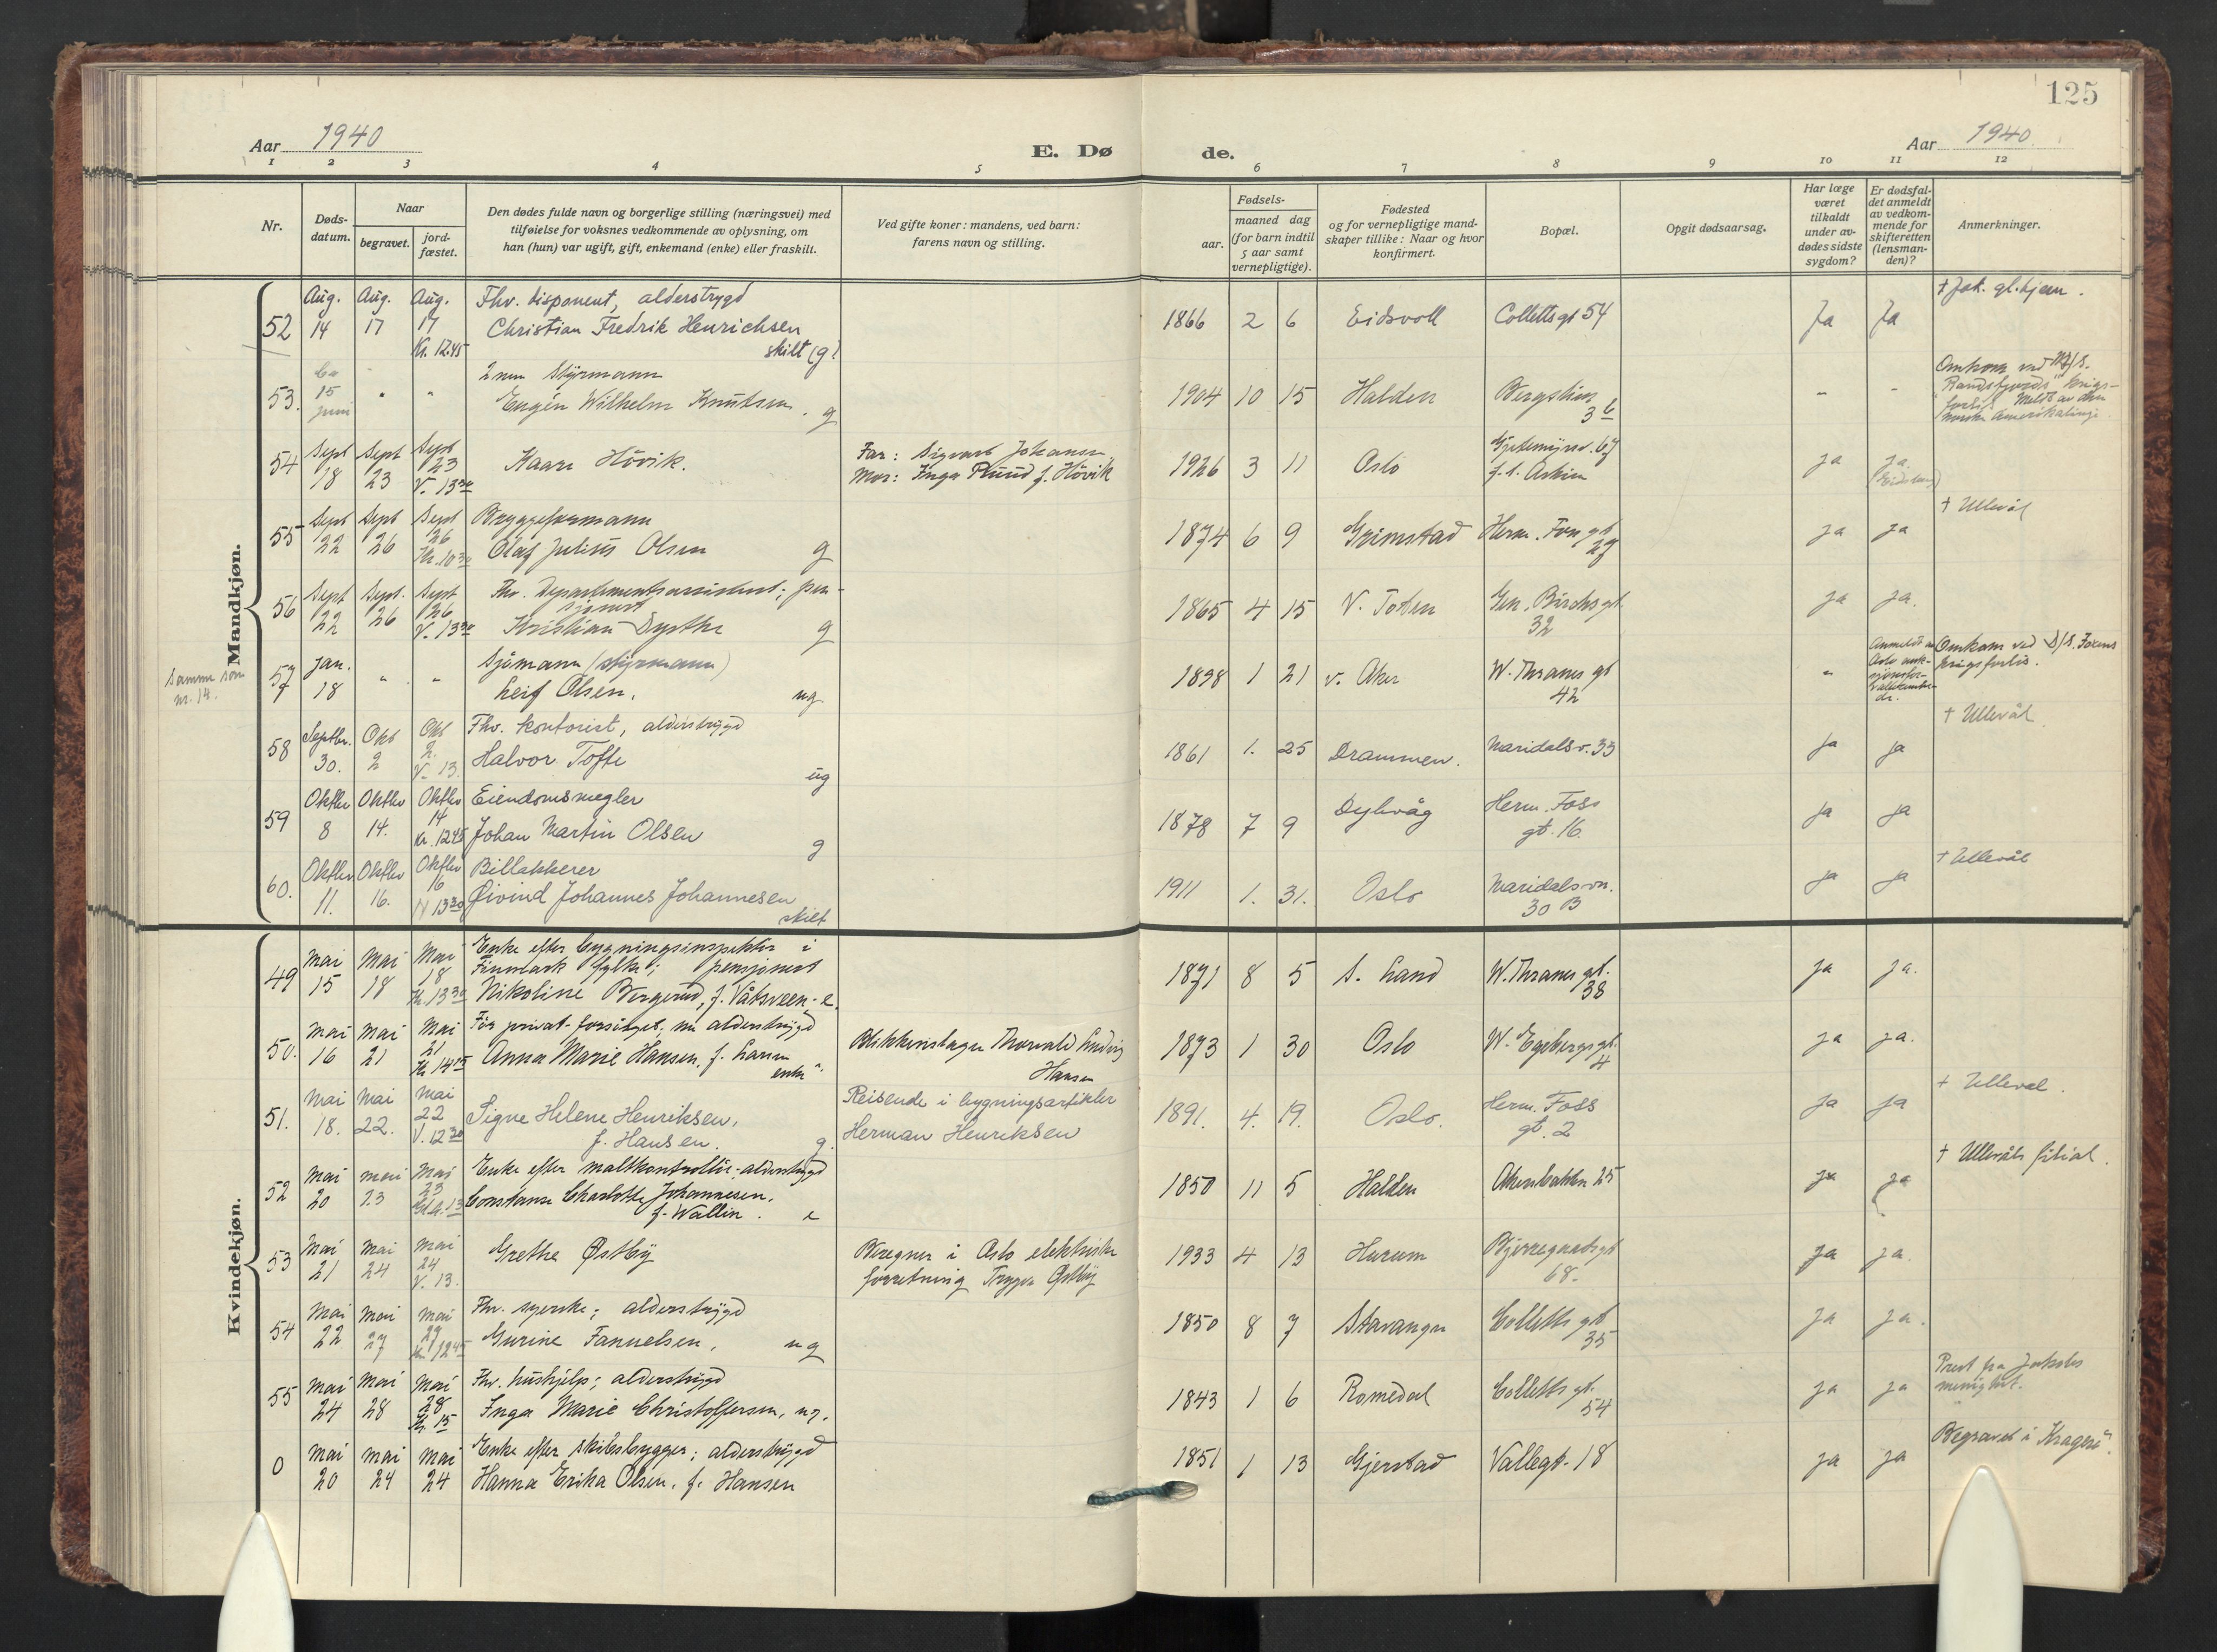 125
Aar 1940
E. Dø
de.
Aar 1940.
1 2 3 4 5 6 7 8 9 10 11 12
Nr.
Døds-
datum.
Naar
begravet.
jord-
fæstet.
Den dødes fulde navn og borgerlige stilling (næringsvei) med
tilføielse for voksnes vedkommende av oplysning, om
han (hun) var ugift, gift, enkemand (enke) eller fraskilt.
Ved gifte koner: mandens, ved barn:
farens navn og stilling.
Fødsels-
aar.
maaned dag
(for barn indtil
5 aar samt
vernepligtige).
Fødested
og for vernepligtige mand-
skaper tillike: Naar og hvor
konfirmert.
Bopæl.
Opgit dødsaarsag.
Har læge
været
tilkaldt
under av-
dødes sidste
sygdom?
Er dødsfal-
det anmeldt
av vedkom-
mende for
skifteretten
(lensman-
den)?
Anmerkninger.
Mandkjøn.
52 Aug. 14 Aug. 17 Aug. 17 Kr. 12.45
Fhv. disponent, alderstrygd
Christian Fredrik Henrichsen
skilt (g)
1866 2 6 Eidsvoll Collettsgt 54 Ja Ja
† Jak. gl.hjem.
53. Ca 15 juni " "
2nen Styrmann
Eugén Wilhelm Knutsen. g
1904 10 15 Halden Bergstien 3 b - -
Omkom ved M/S.
"Randsfjords" krigs-
forlis. Meldt av den
norske Amerikalinje.
54 Sept 18 Sept 23 Sept 23 V. 13 30
Kaare Hövik.
Far: Sigvart Johansen
Mor: Inga Ruud f. Hövik
1926 3 11 Oslo Gjetemyrsv. 67
f.t. Askim
ja ja
55 Sept 22 Sept 26 Sept 26 Kr. 10 30
Bryggeformann
Olaf Julius Olsen g
1874 6 9 Grimstad Herm. Foss gt 27 ja ja
† Ullevål
56 Sept 22 Sept. 26 Sept 26 V. 13 30
Fhv. Departementsassistent; pen-
sjonert
Kristian Dysthe g
1865 4 15 V. Toten Gen. Birchs gt. 32 ja ja.
Samme som
nr. 14.
57 Jan. 18 " "
Sjömann (styrmann)
Leif Olsen. ug
1898 1 21 v. Aker W. Thranes gt 42 "
Omkom ved D/S. Foxens
krigsforlis.
58 Septbr. 30. Okt 2 Okt 2. V. 13.
Fhv. kontorist, alderstrygd
Halvor Tofte ug
1861 1. 25 Drammen. Maridalsv. 33 ja ja
† Ullevål
59 Oktbr 8 Oktbr 14. Oktbr 14 Kr. 12 45
Eiendomsmegler
Johan Martin Olsen g
1878 7 9 Dybvåg Herm. Foss
gt. 16. ja ja
60. Oktbr 11. Oktbr 16. Oktbr 16 N 13 30
Billakkerer
Øivind Johannes Johannesen
skilt
1911 1. 31. Oslo Maridalsvn.
30 B ja ja
† Ullevål
Kvindekjøn.
49 Mai 15 Mai 18 Mai 18 Kr. 13 30
Enke efter bygningsinspektör i
Finmark fylke; pensjonert
Nikoline Bergerud, f. Våtsveen - e.
1871 8 5 S. Land W. Thranes gt. 38 ja ja.
50. Mai 16 Mai 21 Mai 21 Kr 14 15
Før privat-forsörget; nu alderstrygd
Anna Marie Hansen, f. Larsen
enke
Blikkenslager Thorvald Ludvig
Hansen
1873 1 30 Oslo W. Egebergs gt. 4 ja ja.
51. Mai 18. Mai 22. Mai 22 V. 12 30
Signe Helene Henriksen,
f. Hansen. g
Reisende i bygningsartikler
Herman Henriksen
1891. 4. 19. Oslo. Herm. Foss
gt. 2 ja ja
† Ullevål.
52 Mai 20 Mai 23 Mai 23
Enke efter maltkontrollör; alderstrygd
Constanse Charlotte Johannesen.
f. Wallin. e
1850 11 5 Halden Akersbakken 25 ja ja
† Ullevåls filial.
53 Mai 21 Mai 24 Mai 24 V. 13.
Grethe Østby
Beregner i Oslo elektriske
forretning Trygve Østby
1933 4 13 Hurum Bjerregaardsgt 68. ja ja.
54 Mai 22 Mai 27 Mai 27 Kr 12 45
Fhv. syerske; alderstrygd
Gurine Fanuelsen, ug
1850 8 7 Stavanger Colletts gt 35 ja ja.
55 Mai 24 Mai 28 Mai 28 Kr 15
Fhv. hushjelp; alderstrygd
Inga Marie Christoffersen, ug.
1843 1 6 Romedal Colletts gt. 54 ja ja
Prest fra Jakobs
menighet.
0 Mai 20 Mai 24 Mai 24
Enke efter skibsbygger; alderstrygd
Hanna Erika Olsen, f. Hansen
1851 1 13 Gjerstad Vallegt. 18 ja ja
Begravet i Kragerö.